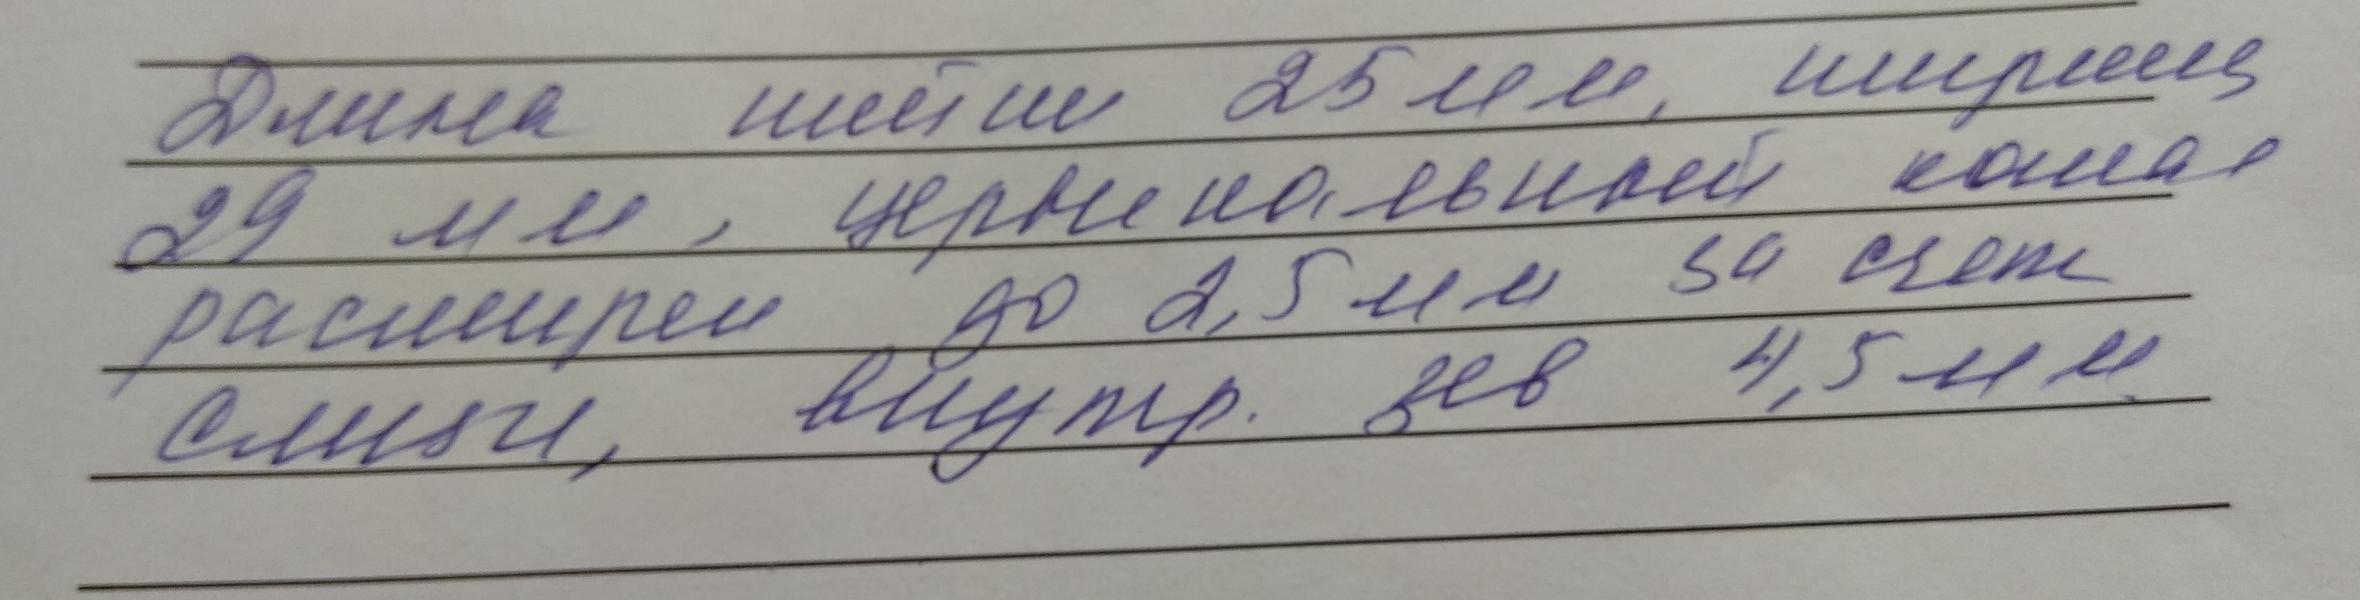 Длина шейки 25 мм, ширина
29 мм, цервикальный канал
расширен до 2,5 мм за счет
слизи, внутр. зев 4,5 мм